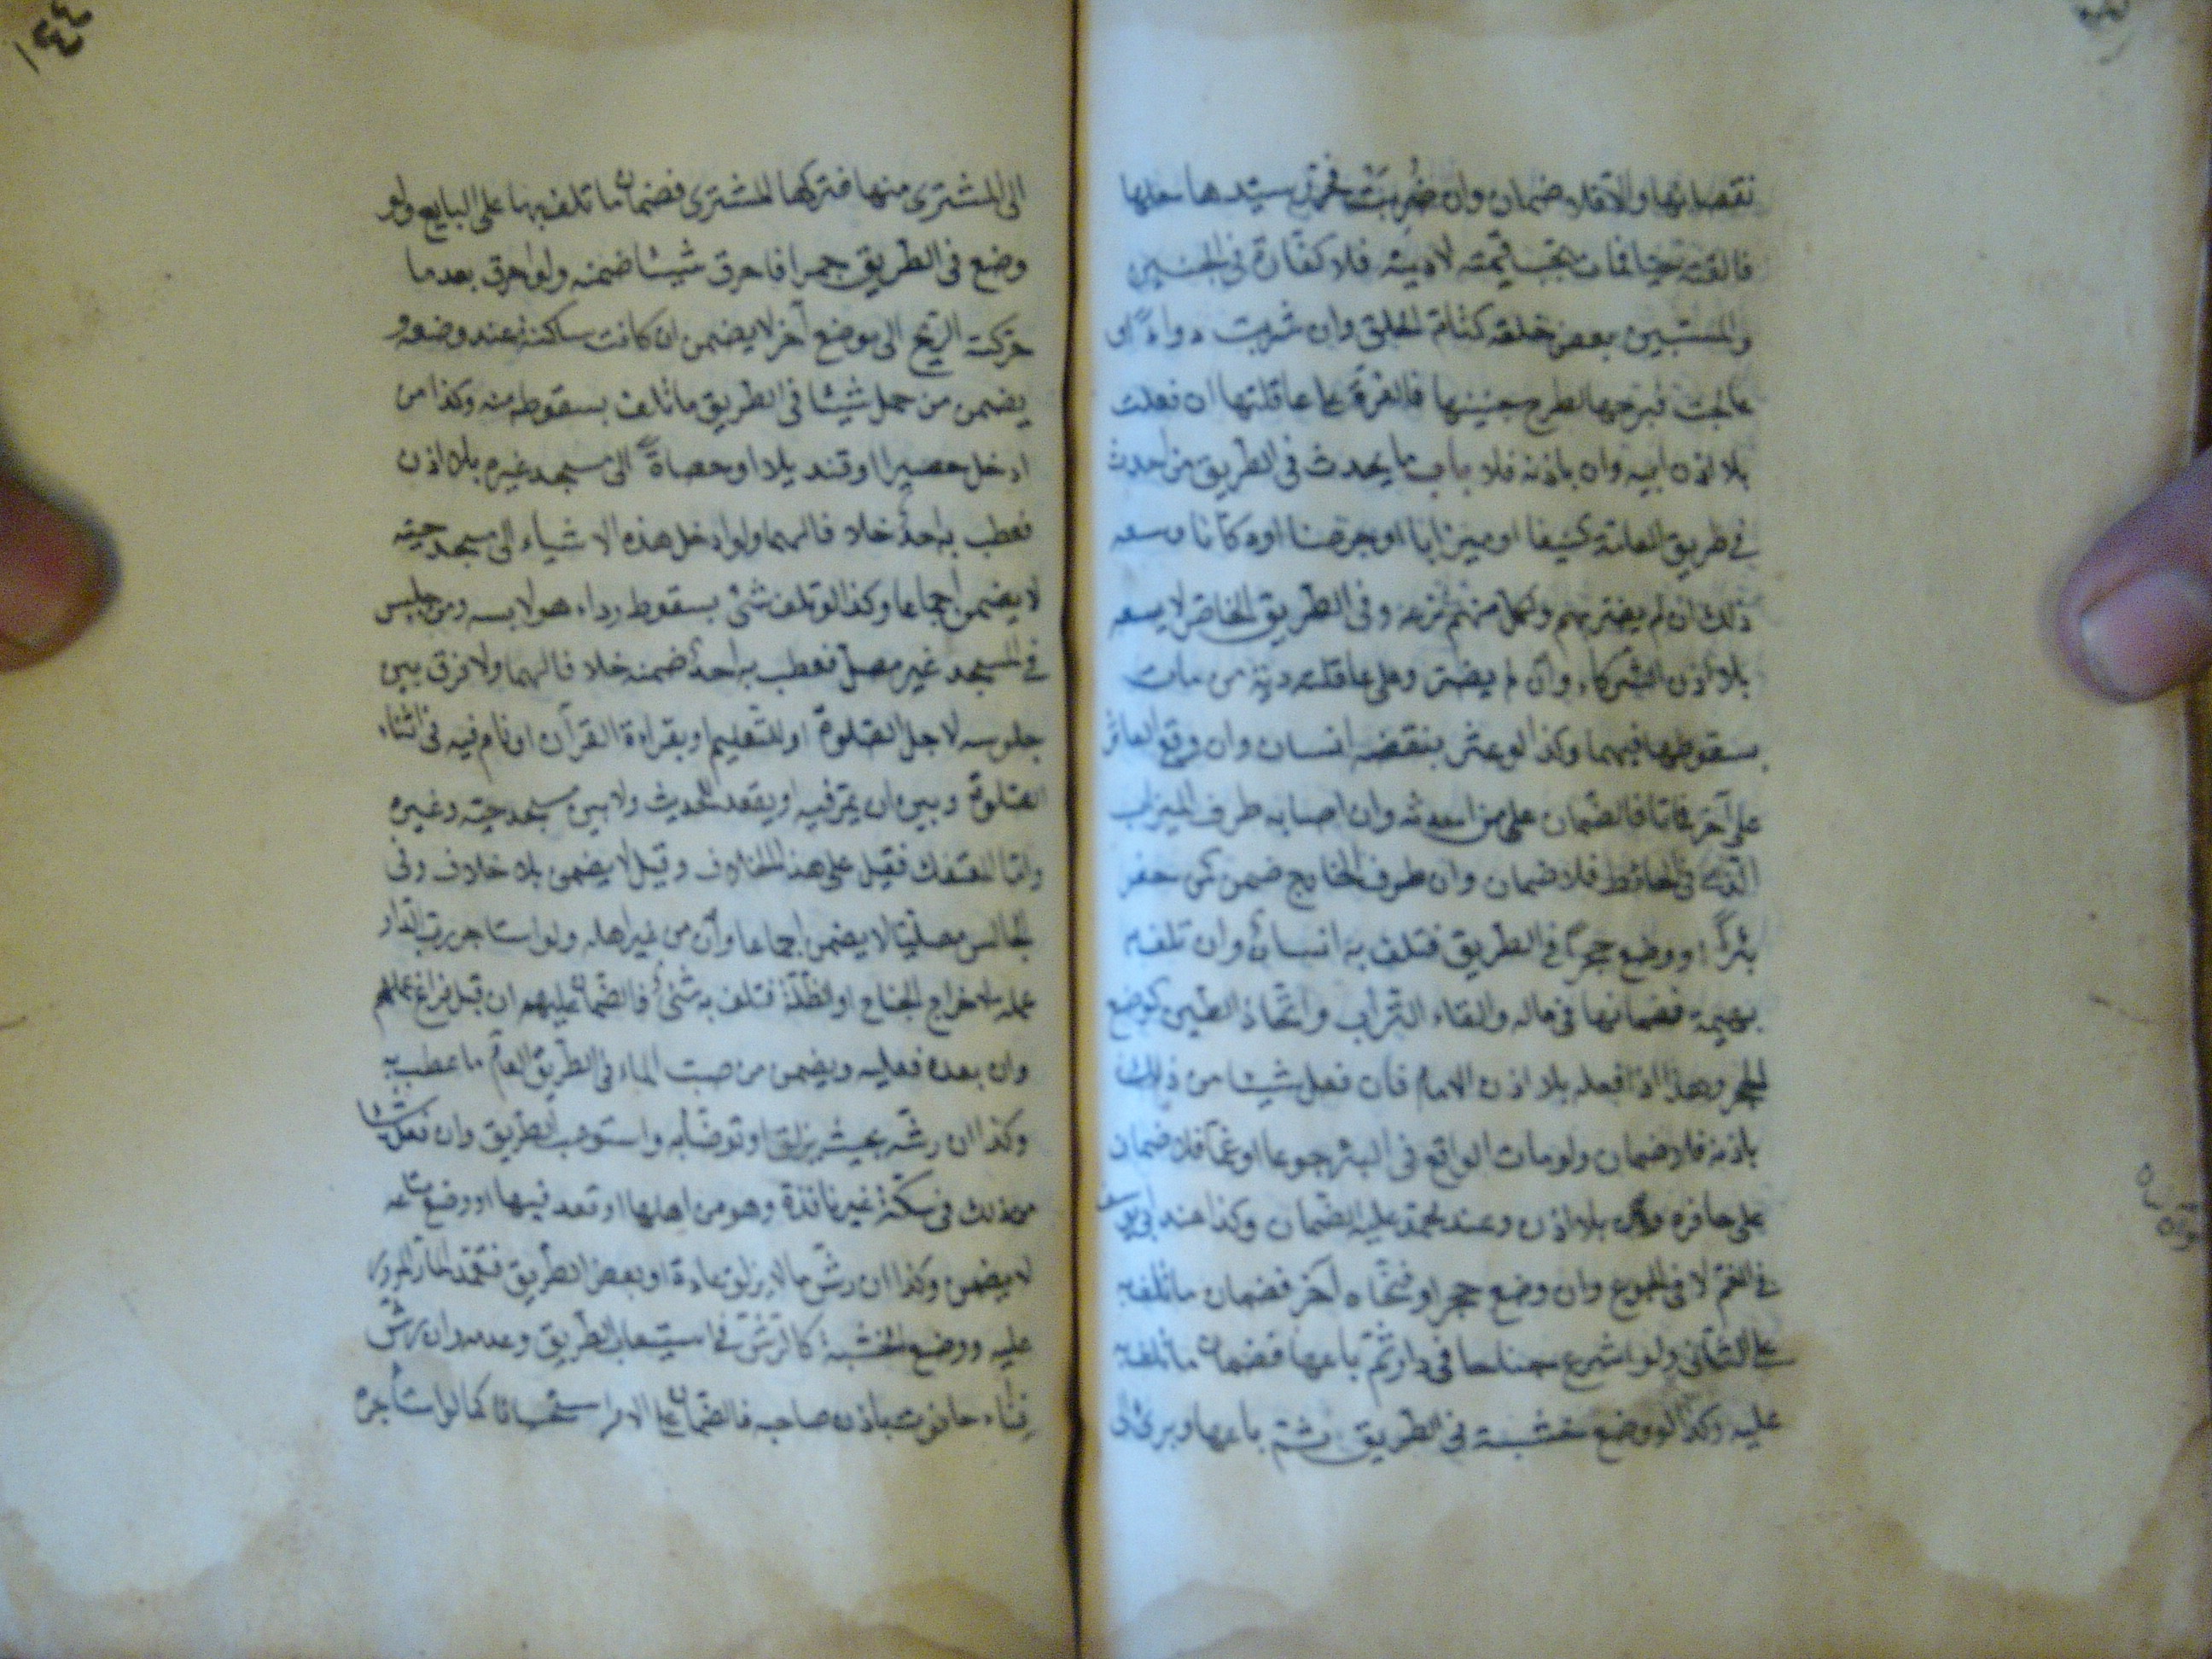 نقصانها والا فلا ضمان وان ضُربَتْ فحرّر سيّدها حملها
فالقته حيّا فمات تجب قيمته لا ديته فلا كفّارة فى الجنين
والمستبين بعض خلقه كتامّ الخلق وان شربت دواءً او
عالجت فرجها لطرح جنينها فالغرّة على عاقلتها ان فعلت
بلا اذن ابيه وان باذنه فلا باب ما يحدث فى الطريق من احدث
فى طريق العامّة كنيفا او ميزابا او جرصنا او دكّانا وسعه
ذلك ان لم يضرّ بهم ولكل منهم نزعه وفى الطريق الخاصّ لا يسعه
بلا اذن الشركاء وان لم يضرّ وعلى عاقلته دية من مات
بسقوطها فيهما وكذا لو عثر بنقضه انسان وان وقع العاثر
على آخر فماتا فالضمان على من احدثه وان اصابه طرف الميزاب
الّذى فى الحائط فلا ضمان وان طرف الخارج ضمن كمن حفر
بئراً او وضع حجراً فى الطريق فتلف به انسانٌ وان تلف به
بهيمة فضمانها فى ماله والقاء التراب واتّخاذ الطين كوضع
الحجر وهذا اذا فعله بلا اذن الامام فان فعل شيئا من ذلك
باذنه فلا ضمان ولو مات الواقع فى البئر جوعا او غمّا فلا ضمان
على حافره وان بلا اذن وعند محمد عليه الضمان وكذا عند ابى يوسف
فى الغم لا فى الجوع وان وضع حجرا فنحّاه آخر فضمان ما تلف به
على الثانى ولو اشرع جناحا فى دار ثمّ باعها فضمان ما تلف به
عليه وكذا لو وضع خشبة فى الطريق ثم باعها وبرئ الى
الى المشترى منها فتركها المشترى فضمان ما تلف بها على البايع ولو
وضع فى الطريق جمرا فاحرق شيئا ضمنه ولو احرق بعدما
حرّكته الريح الى موضع آخر لا يضمن ان كانت ساكنة عند وضعه و
يضمن من حمل شيئا فى الطريق ما تلف بسقوطه منه وكذا من
ادخل حصيرا او قنديلا او حصاةً الى مسجد غيره بلا اذن
فعطب به احدٌ خلافا لهما ولو ادخل هذه الاشياء الى مسجد حيّه
لا يضمن اجماعا وكذا لو تلف شئ بسقوط رداء هو لابسه ومن جلس
فى المسجد غير مصلّ فعطب به احدٌ ضمنه خلافا لهما ولا فرق بين
جلوسه لاجل الصّلوة او للتّعليم او يقراءة القرآن او نام فيه فى اثناء
الصّلوة وبين ان يمرّ فيه او يقعد للحديث ولا بين مسجد حيّه وغيره
وامّا المعتكف فقيل على هذا الخلاف وقيل لا يضمن بلا خلاف وفى
الجالس مصلّيا لا يضمن اجماعا وان من غير اهله ولو استاجر ربّ الدّار
عمله لاخراج الجناح او الظّلّة فتلف به شئٌ فالضّمان عليهم ان قبل فراغ عملهم
وان بعده فعليه ويضمن من صبّ الماء فى الطّريق العامّ ما عطب به
وكذا ان رشّه بحيث يزلق او توضّأ به واستوعب الطريق وان فعل شيئا
من ذلك فى سكّة غير نافذة وهو من اهلها او قعد فيها او وضع متاعه
لا يضمن وكذا ان رشّ ما لا يزلق عادة او بعض الطريق فتعمّد المارّ المرور
عليه ووضع الخشبة كالرّشّ فى استيعاب الطريق وعدمه وان رشّ
فناء حانوت باذن صاحبه فالضّمان على الامر استحسانا كما لو استأجره